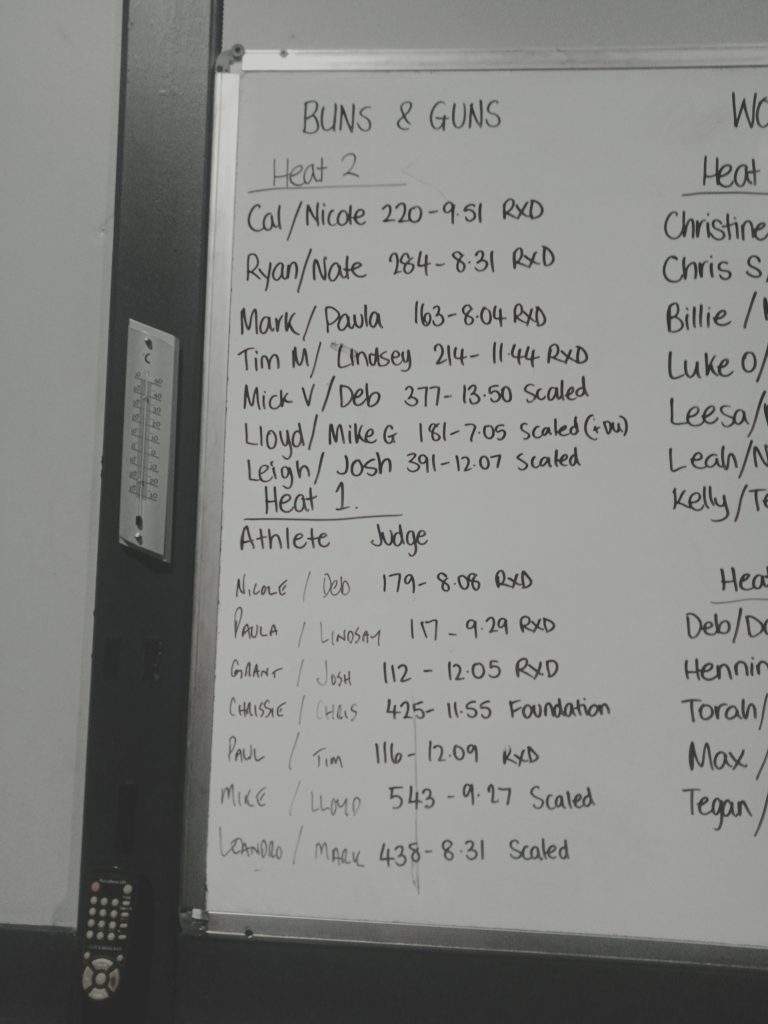 BUNS & GUNS
Heat 2
Cal/Nicole 220-9.51 RXD
Ryan/Nate 284-8.31 RXD
Mark/Paula 163-8.04 RXD
Tim M/Lindsey 214-11.44 RXD
Mick V/Deb 377-13.50 Scaled
Lloyd/Mike G 181-7.05 Scaled (+DU)
Leigh/Josh 391-12.07 Scaled
Heat 1.
Athlete Judge
NICOLE / Deb 179-8.08 RXD
PAULA / LINDSAY 117-9.29 RXD
GRANT / JOSH 112-12.05 RXD
CHRISSIE / CHRIS 425-11.55 Foundation
PAUL / TIM 116-12.09 RXD
MIKE / LLOYD 543-9.27 Scaled
LEANDRO / MARK 438-8.31 Scaled
WO
Heat
Christine
Chris S
Billie /
Luke O/
Leesa/
Leah/N
Kelly/Te
Heat
Deb/Do
Hennin
Torah/
Max /
Tegan /